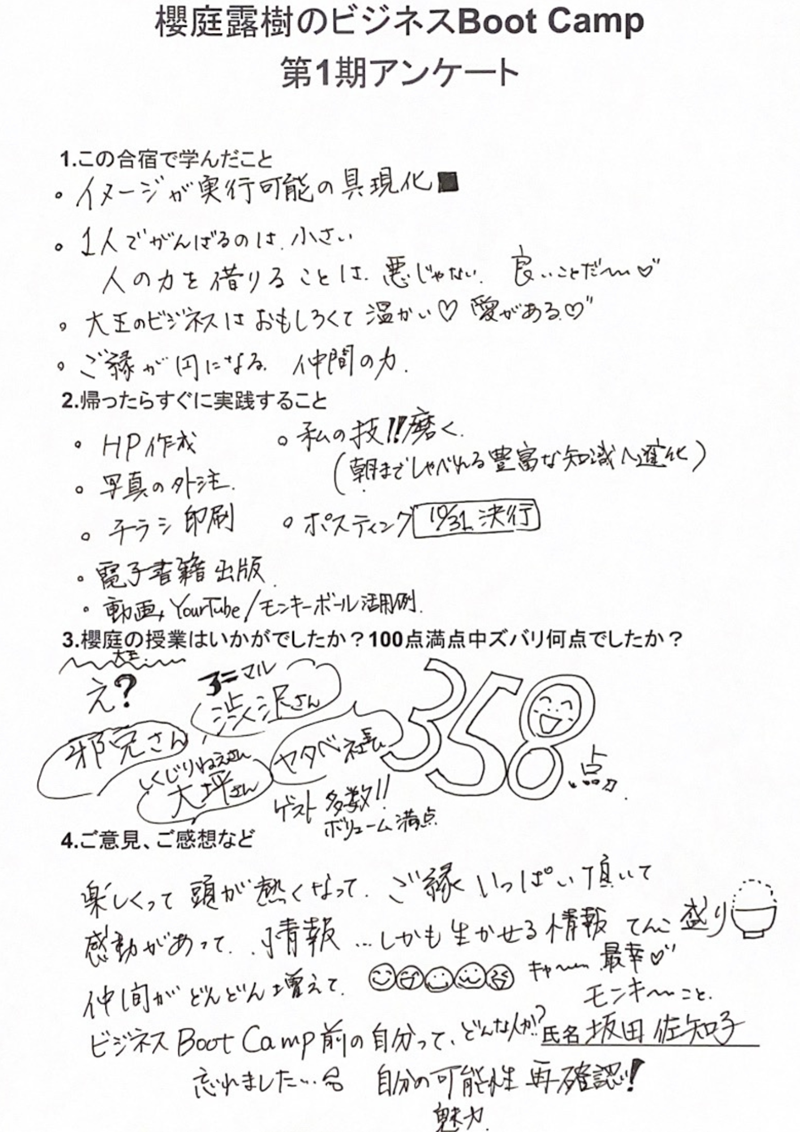 櫻庭露樹のビジネスBoot Camp
第1期アンケート
1.この合宿で学んだこと
。イメージが実行可能の具現化
。1人でがんばるのは、小さい
人の力を借りることは、悪じゃない、良いことだ〜♡"
。大王のビジネスはおもしろくて温かい♡ 愛がある♡"
。ご縁が円になる 仲間の力.
2.帰ったらすぐに実践すること
。HP作成
。私の技!!磨く.
(朝までしゃべれる豊富な知識へ進化)
。写真の外注.
。チラシ印刷
。ポスティング 10/31 決行
。電子書籍出版.
。動画、YouTube/モンキーボール活用例.
3.櫻庭の授業はいかがでしたか？100点満点中ズバリ何点でしたか？
大王
え?
アニマル
渋沢さん
358点
邪兄さん
くじりねえさん
大坪さん
ヤタベ社長
ゲスト多数!!
ボリューム満点
4.ご意見、ご感想など
楽しくって頭が熱くなって、ご縁いっぱい頂いて
感動があって、情報…しかも生かせる情報 てんこ盛り
仲間がどんどん増えて、 キャー 最幸♡"
モンキ〜こと.
ビジネスBoot Camp前の自分って、どんな人か!? 氏名 坂田 佐知子
忘れました… 自分の可能性 再確認!
魅力